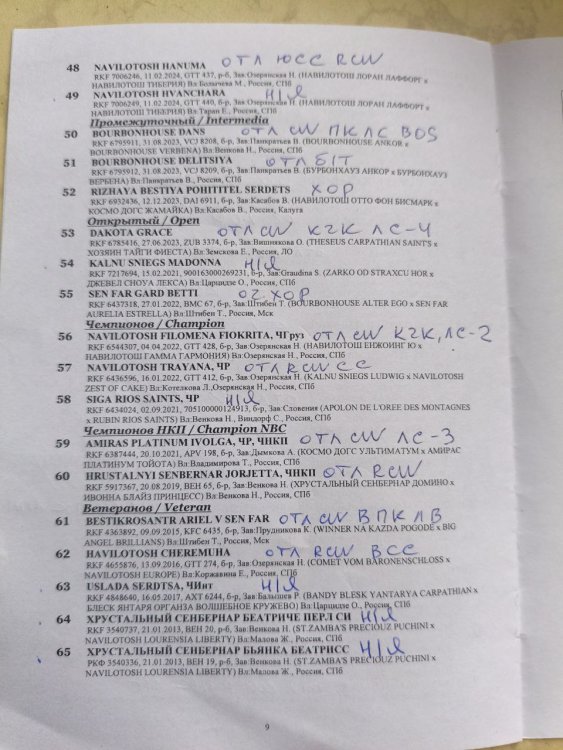 48 NAVILOTOSH HANUMA ОТЛ ЮСС RCW
RKF 7006246, 11.02.2024, GTT 437, р-б, Зав:Озерянская Н. (НАВИЛОТОШ ЛОРАН ЛАФФОРТ х
НАВИЛОТОШ ТИБЕРИЯ) Вл:Болычева М., Россия, СПб
49 NAVILOTOSH HVANCHARA Н/Я
RKF 7006249, 11.02.2024, GTT 440, б-р, Зав:Озерянская Н. (НАВИЛОТОШ ЛОРАН ЛАФФОРТ х
НАВИЛОТОШ ТИБЕРИЯ) Вл:Таран Е., Россия, СПб
Промежуточный / Intermedia
50 BOURBONHOUSE DANS ОТЛ CW ПК ЛС BOS
RKF 6795911, 31.08.2023, VCJ 8208, б-р, Зав:Панкратьев В. (BOURBONHOUSE ANKOR х
BOURBONHOUSE VERBENA) Вл:Венкова Н., Россия, СПб
51 BOURBONHOUSE DELITSIYA ОТЛ Б/Т
RKF 6795912, 31.08.2023, VCJ 8209, б-р, Зав:Панкратьев В. (БУРБОНХАУЗ АНКОР х БУРБОНХАУЗ
ВЕРБЕНА) Вл:Панкратьев В., Россия, СПб
52 RIZHAYA BESTIYA POHITITEL SERDETS ХОР
RKF 6932436, 12.12.2023, DAI 6911, б-р, Зав:Касабов В. (НАВИЛОТОШ ОТТО ФОН БИСМАРК х
КОСМО ДОГС ЖАМАЙКА) Вл:Касабов В., Россия, Калуга
Открытый / Open
53 DAKOTA GRACE ОТЛ CW КЧК ЛС-4
RKF 6785416, 27.06.2023, ZUB 3374, б-р, Зав:Вишнякова О. (THESEUS CARPATHIAN SAINTS х
ХОЗЯИН ТАЙГИ ФИЕСТА) Вл:Земскова Е., Россия, ЛО
54 KALNU SNIEGS MADONNA Н/Я
RKF 7217694, 15.02.2021, 900163000269231, б-р, Зав:Graudina S. (ZARKO OD STRAXCU HOR х
ДЖЕВЕЛ СНОУА ЛЕКСА) Вл:Царцидзе О., Россия, СПб
55 SEN FAR GARD BETTI ОЧ.ХОР
RKF 6437318, 27.01.2022, BMC 67, б-р, Зав:Штибен Т. (BOURBONHOUSE ALTER EGO х SEN FAR
AURELIA ESTRELLA) Вл:Штибен Т., Россия, Мск
Чемпионов / Champion
56 NAVILOTOSH FILOMENA FIOKRITA, ЧГруз ОТЛ CW КЧК, ЛС-2
RKF 6544307, 04.04.2022, GTT 428, б-р, Зав:Озерянской Н. (НАВИЛОТОШ ВИЖОИНГ Ю х
НАВИЛОТОШ ГАММА ГАРМОНИЯ) Вл:Озерянской Н., Россия, СПб
57 NAVILOTOSH TRAYANA, ЧР ОТЛ RCW СС
RKF 6436596, 16.01.2022, GTT 412, б-р, Зав:Озерянской Н. (KALNU SNIEGS LUDWIG х NAVILOTOSH
ZEST OF CAKE) Вл:Котелкова Л.,Озерянская Н., Россия, СПб
58 SIGA RIOS SAINTS, ЧР Н/Я
RKF 6434024, 02.09.2021, 705100000124913, б-р, Зав:Словения (APOLON DE L'OREE DES MONTAGNES
х RUBIN RIOS SAINTS) Вл:Венкова Н., Виндорф С., Россия, СПб
Чемпионов НКП / Champion NBC
59 AMIRAS PLATINUM IVOLGA, ЧР, ЧНКП ОТЛ CW ЛС-3
RKF 6387444, 20.10.2021, APV 198, б-р, Зав:Дымкова А. (КОСМО ДОГС УЛЬТИМАТУМ х АМИРАС
ПЛАТИНУМ ТОЙОТА) Вл:Владимирова Т., Россия, СПб
60 HRUSTALNYI SENBERNAR JORJETTA, ЧНКП ОТЛ RCW
RKF 5917367, 20.08.2019, BEH 65, б-р, Зав:Венкова Н. (ХРУСТАЛЬНЫЙ СЕНБЕРНАР ДОМИНО х
ИВОННА БЛАЙЗ ПРИНЦЕСС) Вл:Венкова Н., Россия, СПб
Ветеранов / Veteran
61 BESTIKROSANTR ARIEL V SEN FAR ОТЛ CW ВПК ЛВ
RKF 4363892, 09.09.2015, KFC 6435, б-р, Зав:Прудникова К. (WINNER NA KAZDA POGODE х BIG
ANGEL BRILLIANS) Вл:Штибен Т., Россия, Мск
62 HAVILOTOSH CHEREMUHA ОТЛ RCW ВСС
RKF 4655876, 13.09.2016, GTT 274, б-р, Зав:Озерянской Н. (COMET VOM BARONENSCHLOSS х
NAVILOTOSH EUROPE) Вл:Коржавина Е., Россия, СПб
63 USLADA SERDTSA, ЧИнт Н/Я
RKF 4848640, 16.05.2017, AXT 6244, б-р, Зав:Балышев Р. (BANDY BLESK YANTARYA CARPATHIAN х
БЛЕСК ЯНТАРЯ ОРГАНЗА ВОЛШЕБНОЕ КРУЖЕВО) Вл:Царцидзе О., Россия, СПб
64 ХРУСТАЛЬНЫЙ СЕНБЕРНАР БЕАТРИЧЕ ПЕРЛ СИ Н/Я
RKF 3540737, 21.01.2013, BEH 20, р-б, Зав:Венкова Н. (ST.ZAMBA'S PRECIOUZ PUCHINI х
NAVILOTOSH LOURENSIA LIBERTY) Вл:Малова Ж., Россия, СПб
65 ХРУСТАЛЬНЫЙ СЕНБЕРНАР БЬЯНКА БЕАТРИСС Н/Я
РКФ 3540336, 21.01.2013, BEH 19, р-б, Зав:Венкова Н. (ST.ZAMBA'S PRECIOUZ PUCHINI х
NAVILOTOSH LOURENSIA LIBERTY) Вл:Малова Ж., Россия, СПб
9